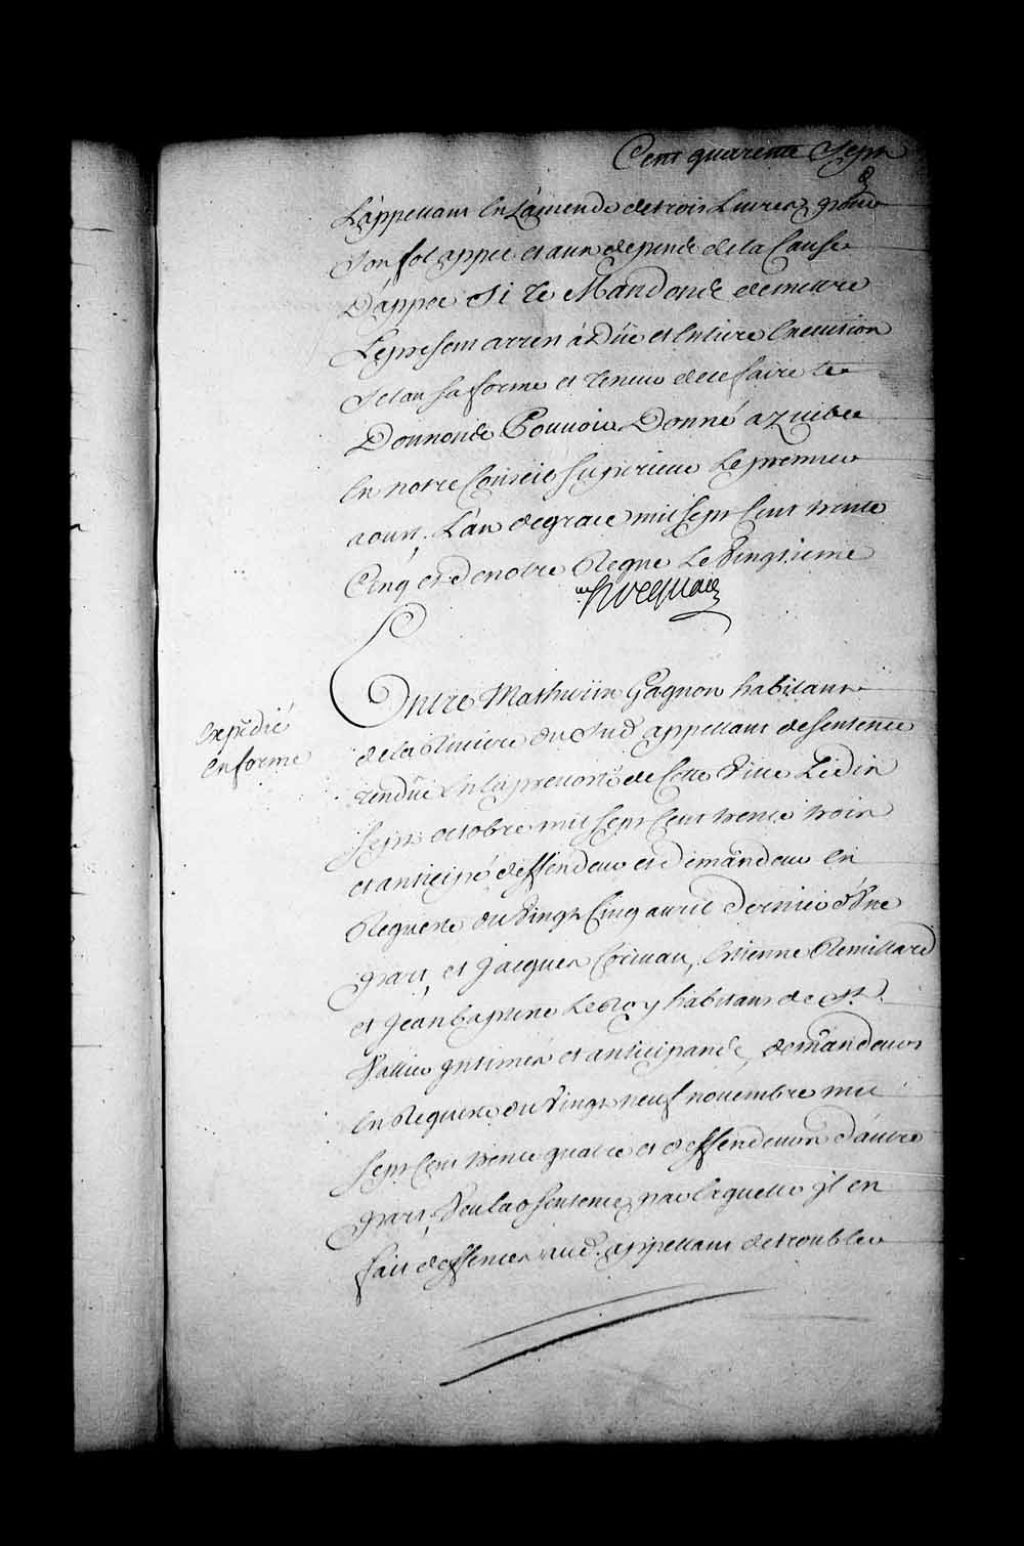 Cent quarente Sept
L'appellant En L'amende de trois Livres pour
Son fol appel et aux depends de la Cause
D'appel Si te Mandons de mettre
Le present arrest à Düe et Entiere Execution
Selon sa forme et teneur de ce faire te
Donnons Pouvoir Donné a quebec
En notre Conseil superieur Le premier
aoust L'an de grace mil sept Cent trente
Cinq et de notre Regne Le Vingtieme
hocquart
Entre Mathurin Gagnon habitant
de la Riviere du Sud appellant de sentence
rendüe En la prevosté de Cette Ville Le dix
sept octobre mil sept Cent trente trois
et anticipé deffendeur et Demandeur En
Requeste du Vingt Cinq avril Dernier d'Une
part, et Jacques Corivau, Estienne Remillard
et Jean baptiste Le Roy habitans de St.
Vallier Intimés et anticipants, demandeurs
En Requeste du Vingt neuf novembre mil
sept Cent trente quatre et deffendeurs d'autre
part, Veu la sentence par laquelle il est
fait deffences aud. appellant de troubler
Expedié
en forme